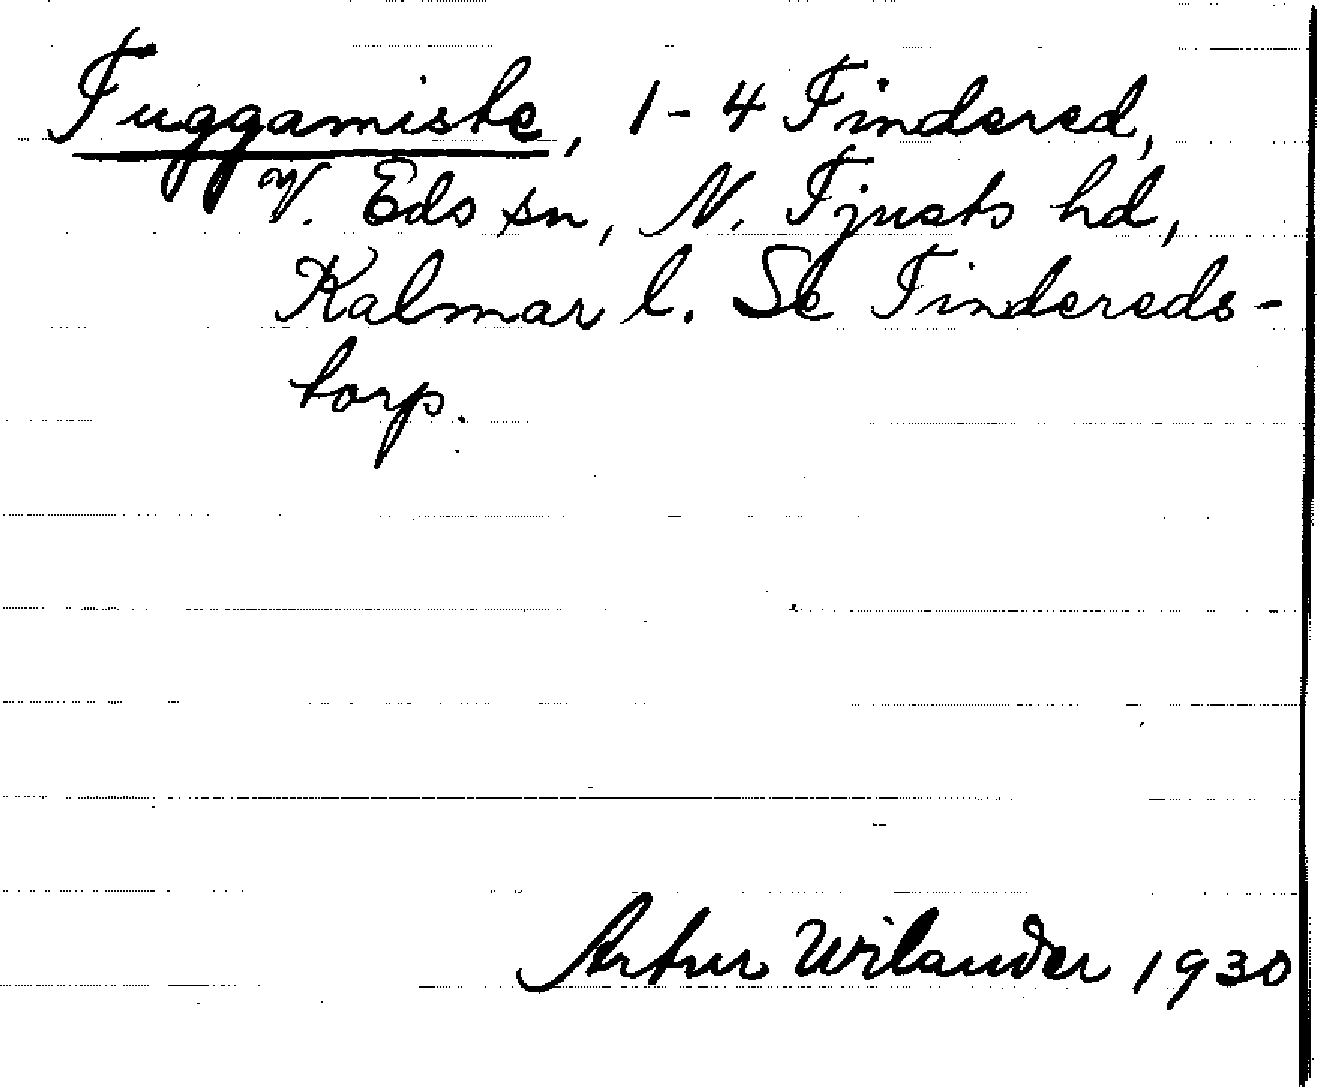 Tuggamiste, 1-4 Tindered,
V. Eds sn, N. Tjusts hd,
Kalmar l. Se Tindereds-
torp.
Artur Wilander 1930